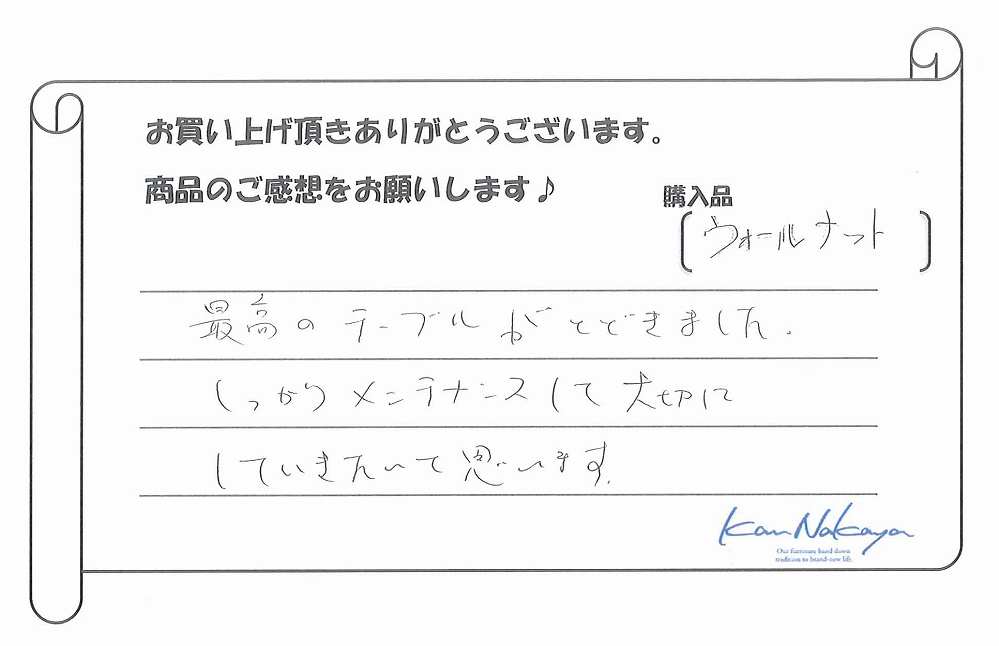 お買い上げ頂きありがとうございます。
商品のご感想をお願いします♪
購入品
ウォールナット
最高のテーブルがとどきました.
しっかりメンテナンスして大切に
していきたいて思います.
Kan Nakaya
Our furniture hand down
tradition to brand-new life